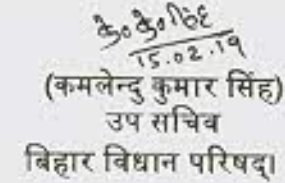 कु० कु० सिंह
15.02.19
(कमलेन्दु कुमार सिंह)
उप सचिव
बिहार विधान परिषद्।